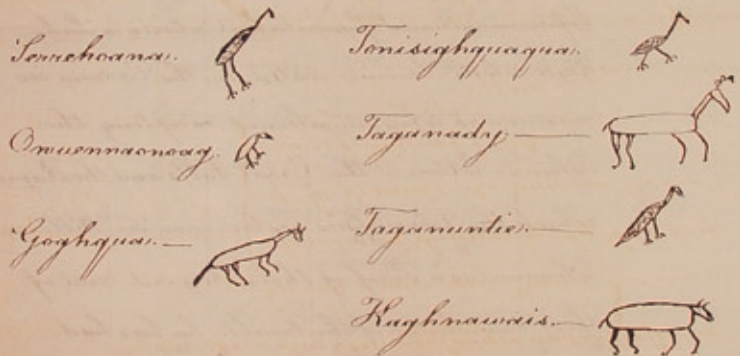 Serrehoana.
Onuennaonoag.
Goghqua.—
Tonisighquaqua.
Taganady.—
Taganuntie.—
Kaghnawais.—